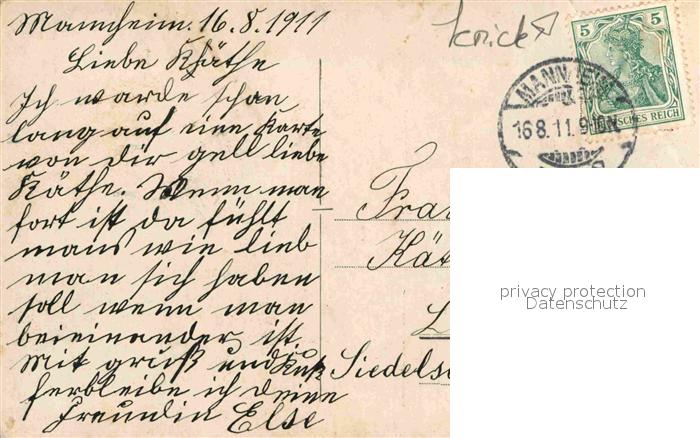 Mannheim. 16.8.1911
Liebe Käthe
Ich warde schon
lang auf eine Karte
von dir gell liebe
Käthe. Wenn man
fort ist da fühlt
mans wie lieb
man sich haben
soll wenn man
beieinander ist.
Mit gruß und Kuß
ferbleibe ich deine
Freundin Else
knick
5 5
DEUTSCHES REICH
MANNHEIM
16 8.11. 9-10N
Frau
Kät
L
Siedels
privacy protection
Datenschutz